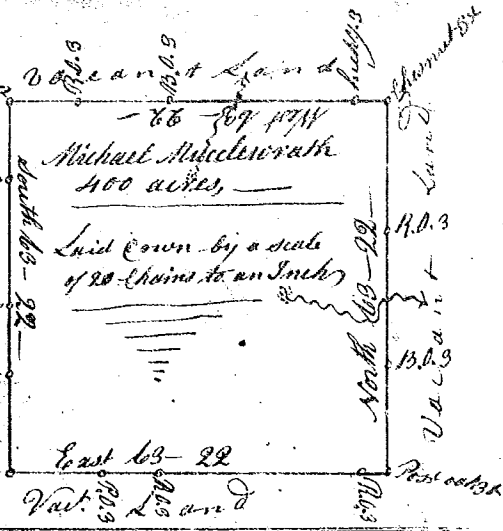 Vacant Land
R.O.3
B.O.3
Hickry.3
Chesnut 3x
West 63-22-
Michael Mucclewrath
400 acres,
Laid Down by a scale
of 20 Chains to an Inch
South 63-22-
North 63-22-
Vacant Land
R.O.3
B.O.3
East 63-22
Post oak 3x
Vact. Land
P.O.3
R.O.3